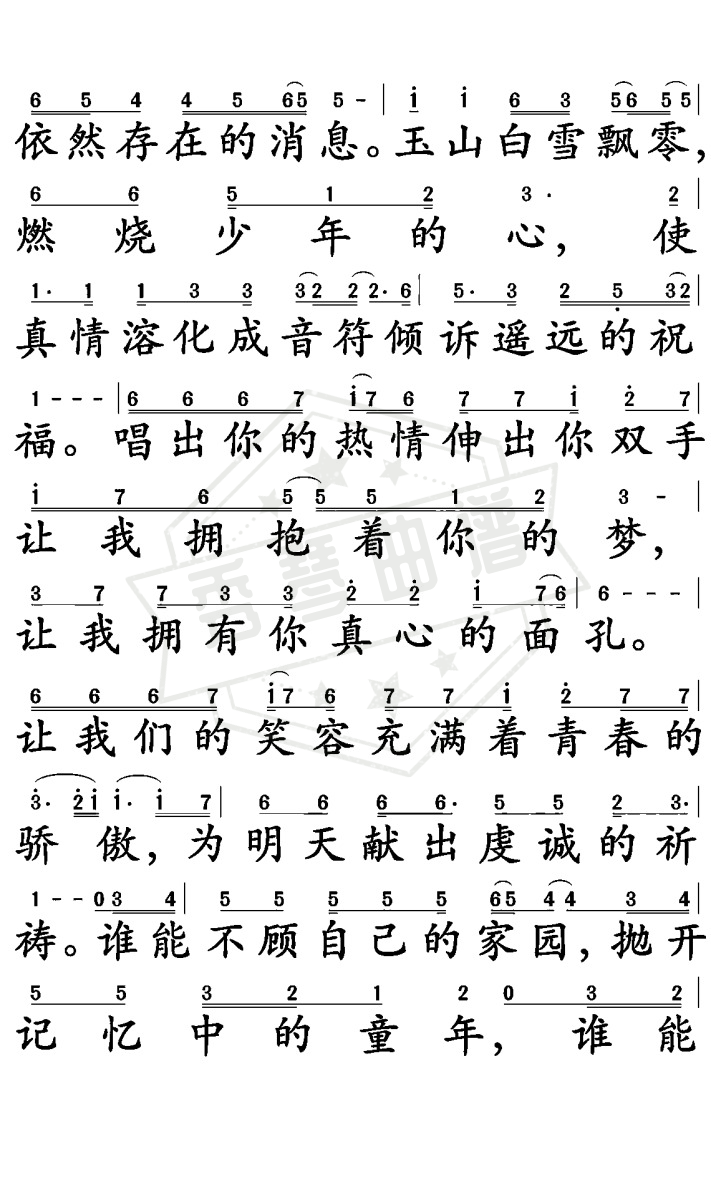 6 5 4 4 5 65 5 - | i i 6 3 56 55 |
依然存在的消息。玉山白雪飘零，
6 6 5 1 2 3 · 2 |
燃烧少年的心，使
1 · 1 1 3 3 32 22 · 6 | 5 · 3 2 5 32 |
真情溶化成音符倾诉遥远的祝
1 - - - | 6 6 6 7 i7 6 7 7 i 2 7 |
福。唱出你的热情伸出你双手
i 7 6 5 5 5 1 2 3 - |
让我拥抱着你的梦，
3 7 7 3 3 2 2 i 76 | 6 - - - |
让我拥有你真心的面孔。
6 6 6 7 i7 6 7 7 i 2 7 7 |
让我们的笑容充满着青春的
3 · 2i i · i 7 | 6 6 6 6 · 5 5 2 3 · |
骄傲，为明天献出虔诚的祈
1 - - 03 4 | 5 5 5 5 5 65 44 3 4 |
祷。谁能不顾自己的家园，抛开
5 5 3 2 1 2 0 3 2 |
记忆中的童年，谁能
秀琴曲谱